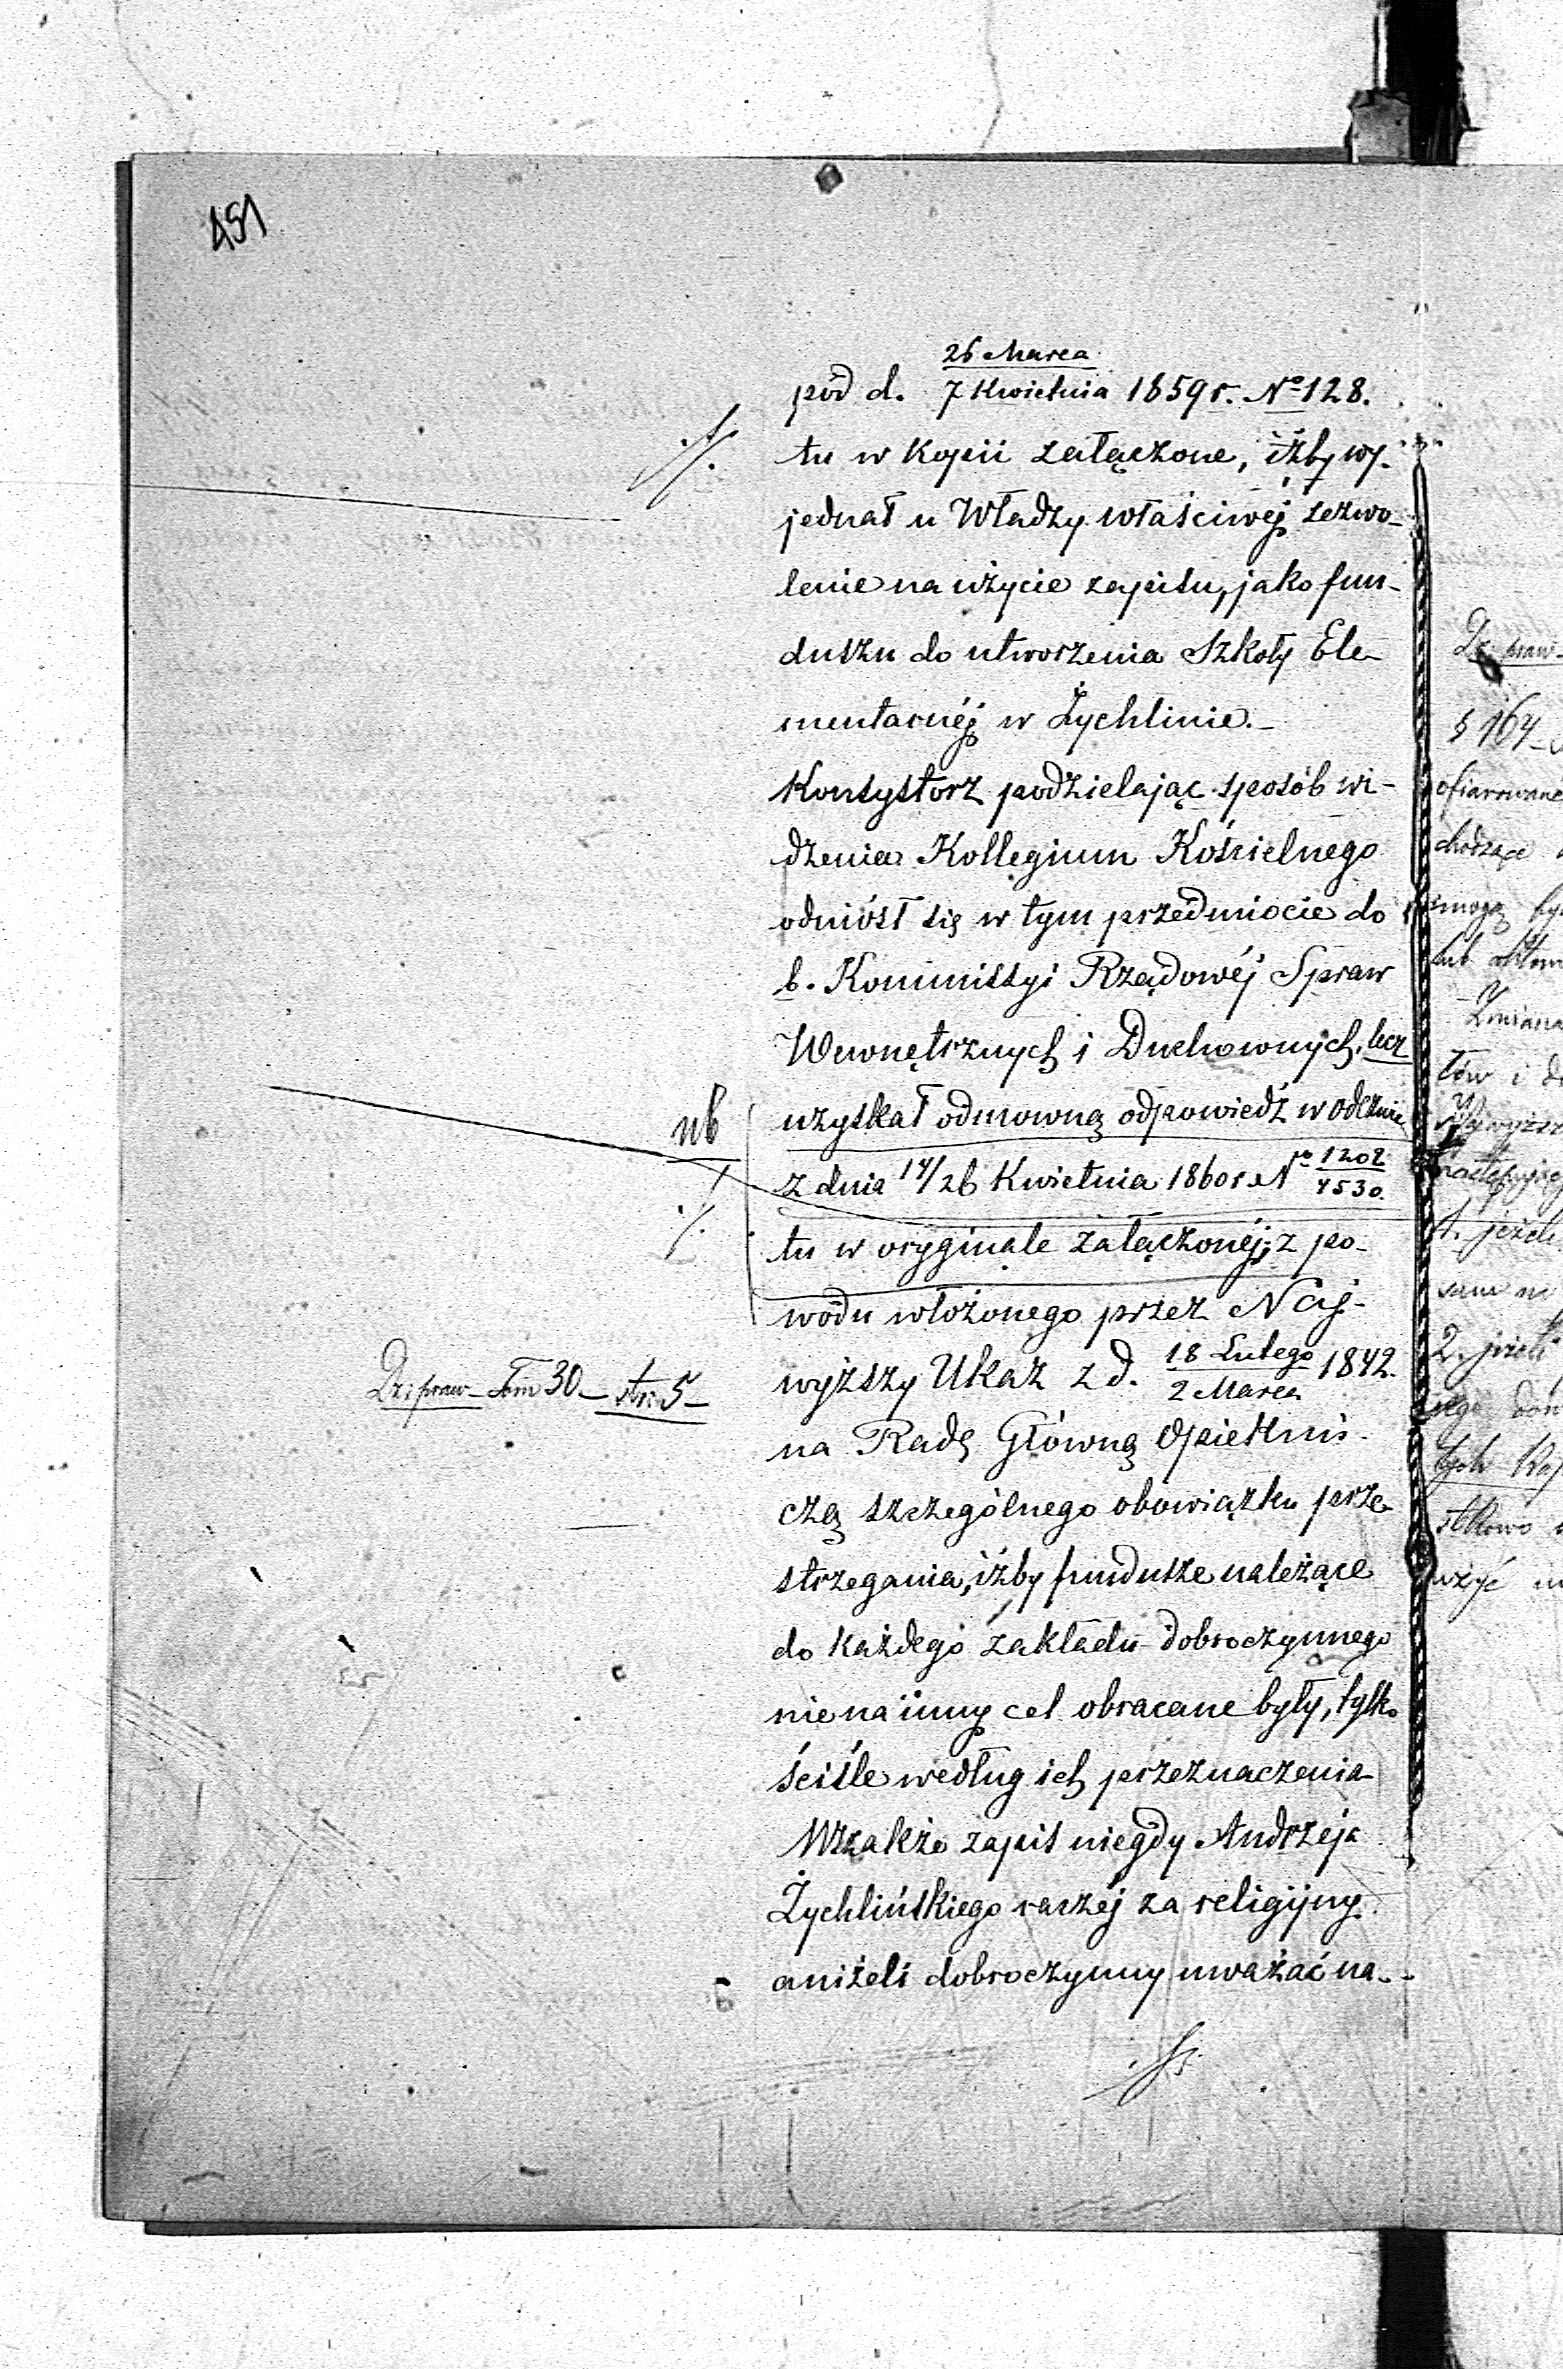 451
26 Marca
pod d. 7 Kwietnia 1859 r. No 128.
tu w kopii załączone, iżby wy-
jednał u Władzy właściwéj zezwo-
lenie na użycie zapisu, jako fun-
duszu do utworzenia Szkoły Ele-
mentarnéj w Żychlinie.-
Konsystorz podzielając sposób wi-
dzenia Kollegium Kościelnego
odniósł się w tym przedmiocie do
b. Kommissyi Rządowéj Spraw
Wewnętrznych i Duchownych, lecz
nb uzyskał odmowną odpowiedź w odezwie
z dnia 14/26 Kwietnia 1860 r. No 1202/4530.
tu w oryginale załączonéj; z po-
wodu włożonego przez Naj-
Dz: praw Tom 30 - str: 5 -
wyższy Ukaz z d. 18 Lutego/2 Marca 1842.
na Radę Główną Opiekuń-
czą szczególnego obowiązku prze-
strzegania, iżby fundusze należące
do każdego zakładu dobroczynnego
nie na inny cel obracane były, tylko
ściśle według ich przeznaczenia
Wszakże zapis niegdy Andrzeja
Żychlińskiego raczéj za religijny
aniżeli dobroczynny uważać na-
Dz: praw
§ 164
ofiarowane
chodzące
mogą
lub
Zmiana
tów i
1. jeżeli
2. jeżeli
tych
użyć